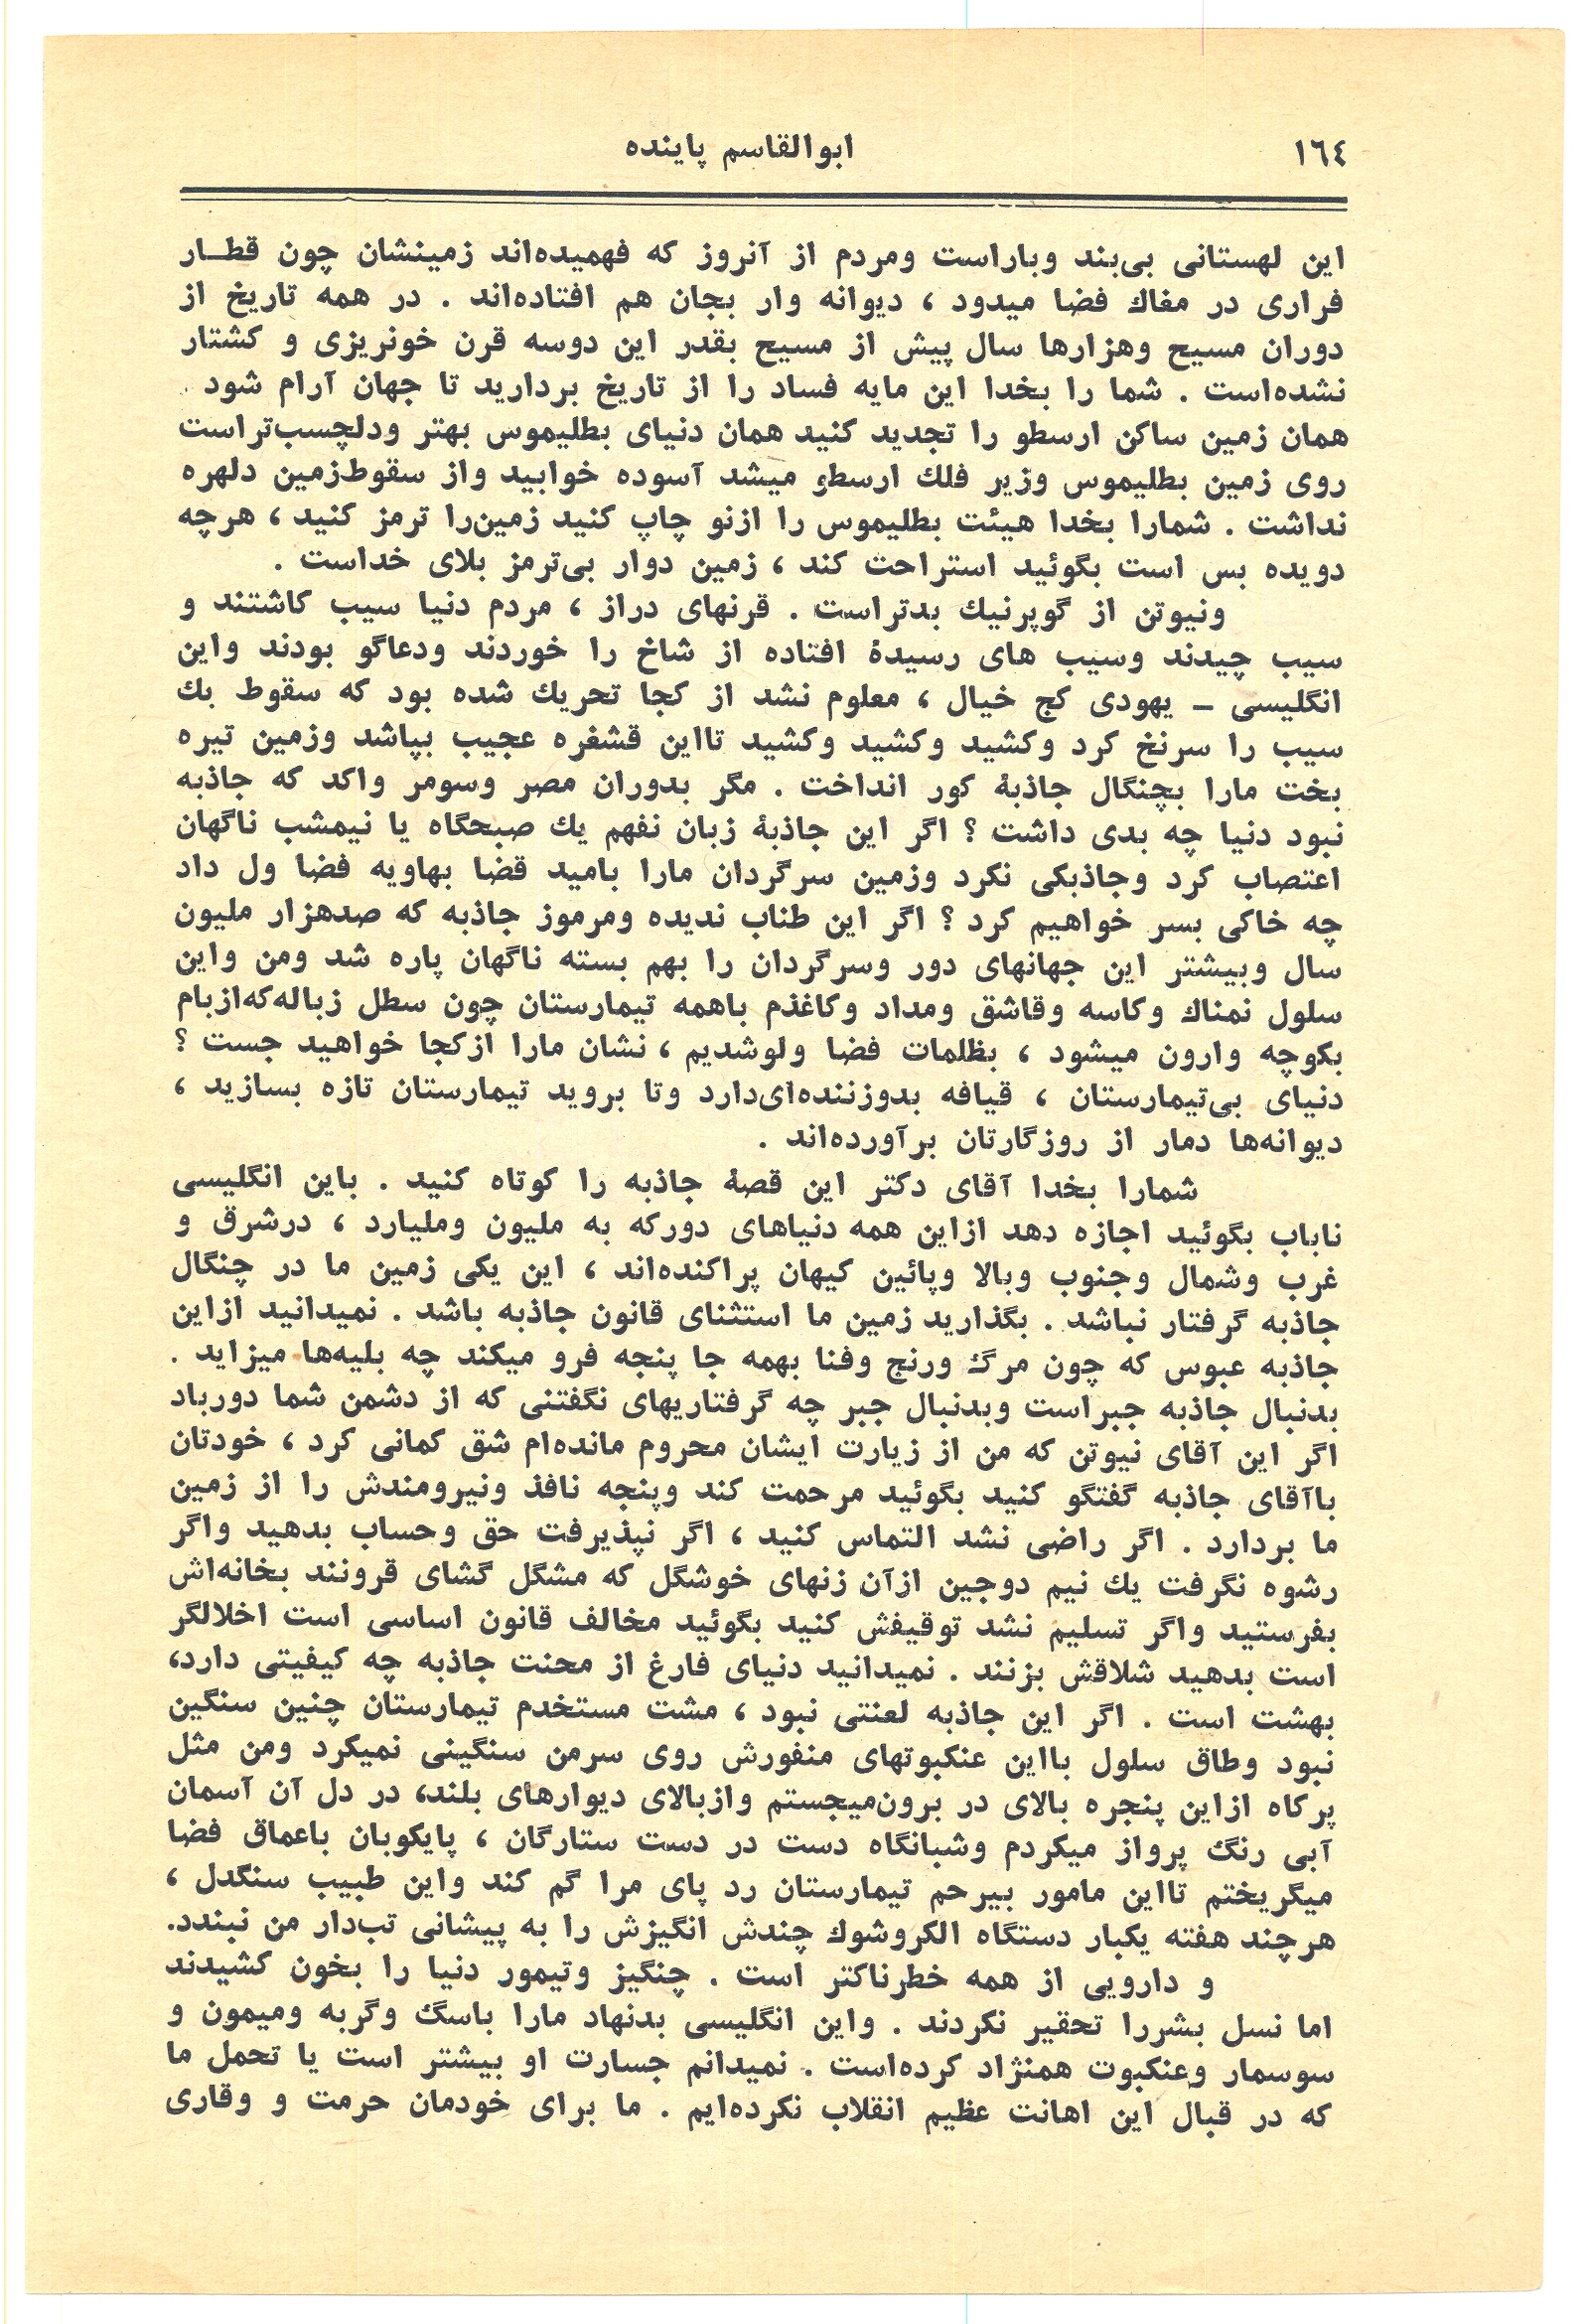 ١٦٤
ابوالقاسم پاینده
این لهستانی بی‌بند وباراست ومردم از آنروز که فهمیده‌اند زمینشان چون قطـار
فراری در مغاك فضا میدود ، دیوانه وار بجان هم افتاده‌اند . در همه تاریخ از
دوران مسیح وهزارها سال پیش از مسیح بقدر این دوسه قرن خونریزی و کشتار
نشده‌است . شما را بخدا این مایه فساد را از تاریخ بردارید تا جهان آرام شود .
همان زمین ساکن ارسطو را تجدید کنید همان دنیای بطلیموس بهتر ودلچسب‌تراست
روی زمین بطلیموس وزیر فلك ارسطو میشد آسوده خوابید واز سقوط‌زمین دلهره
نداشت . شمارا بخدا هیئت بطلیموس را ازنو چاپ کنید زمین‌را ترمز کنید ، هرچه
دویده بس است بگوئید استراحت کند ، زمین دوار بی‌ترمز بلای خداست .
ونیوتن از گوپرنیك بدتراست . قرنهای دراز ، مردم دنیا سیب کاشتند و
سیب چیدند وسیب های رسیدهٔ افتاده از شاخ را خوردند ودعاگو بودند واین
انگلیسی – یهودی کج خیال ، معلوم نشد از کجا تحریك شده بود که سقوط بك
سیب را سرنخ کرد وکشید وکشید وکشید تااین قشغره عجیب بپاشد وزمین تیره
بخت مارا بچنگال جاذبهٔ کور انداخت . مگر بدوران مصر وسومر واکد که جاذبه
نبود دنیا چه بدی داشت ؟ اگر این جاذبهٔ زبان نفهم یك صبحگاه یا نیمشب ناگهان
اعتصاب کرد وجاذبکی نکرد وزمین سرگردان مارا بامید قضا بهاویه فضا ول داد
چه خاکی بسر خواهیم کرد ؟ اگر این طناب ندیده ومرموز جاذبه که صدهزار ملیون
سال وبیشتر این جهانهای دور وسرگردان را بهم بسته ناگهان پاره شد ومن واین
سلول نمناك وکاسه وقاشق ومداد وکاغذم باهمه تیمارستان چون سطل زباله‌که‌ازبام
بکوچه وارون میشود ، بظلمات فضا ولوشدیم ، نشان مارا ازکجا خواهید جست ؟
دنیای بی‌تیمارستان ، قیافه بدوزننده‌ای‌دارد وتا بروید تیمارستان تازه بسازید ،
دیوانه‌ها دمار از روزگارتان برآورده‌اند .
شمارا بخدا آقای دکتر این قصهٔ جاذبه را کوتاه کنید . باین انگلیسی
ناباب بگوئید اجازه دهد ازاین همه دنیاهای دورکه به ملیون وملیارد ، درشرق و
غرب وشمال وجنوب وبالا وپائین کیهان پراکنده‌اند ، این یکی زمین ما در چنگال
جاذبه گرفتار نباشد . بگذارید زمین ما استثنای قانون جاذبه باشد . نمیدانید ازاین
جاذبه عبوس که چون مرگ ورنج وفنا بهمه جا پنجه فرو میکند چه بلیه‌ها میزاید .
بدنبال جاذبه جبراست وبدنبال جبر چه گرفتاریهای نگفتنی که از دشمن شما دورباد
اگر این آقای نیوتن که من از زیارت ایشان محروم مانده‌ام شق کمانی کرد ، خودتان
باآقای جاذبه گفتگو کنید بگوئید مرحمت کند وپنجه نافذ ونیرومندش را از زمین
ما بردارد . اگر راضی نشد التماس کنید ، اگر نپذیرفت حق وحساب بدهید واگر
رشوه نگرفت یك نیم دوجین ازآن زنهای خوشگل که مشگل گشای قرونند بخانه‌اش
بفرستید واگر تسلیم نشد توقیفش کنید بگوئید مخالف قانون اساسی است اخلالگر
است بدهید شلاقش بزنند . نمیدانید دنیای فارغ از محنت جاذبه چه کیفیتی دارد،
بهشت است . اگر این جاذبه لعنتی نبود ، مشت مستخدم تیمارستان چنین سنگین
نبود وطاق سلول بااین عنکبوتهای منفورش روی سرمن سنگینی نمیکرد ومن مثل
پرکاه ازاین پنجره بالای در برون‌میجستم وازبالای دیوارهای بلند، در دل آن آسمان
آبی رنگ پرواز میکردم وشبانگاه دست در دست ستارگان ، پایکوبان باعماق فضا
میگریختم تااین مامور بیرحم تیمارستان رد پای مرا گم کند واین طبیب سنگدل ،
هرچند هفته یکبار دستگاه الکروشوك چندش انگیزش را به پیشانی تب‌دار من نبندد.
و دارویی از همه خطرناکتر است . چنگیز وتیمور دنیا را بخون کشیدند
اما نسل بشررا تحقیر نکردند . واین انگلیسی بدنهاد مارا باسگ وگربه ومیمون و
سوسمار وعنکبوت همنژاد کرده‌است . نمیدانم جسارت او بیشتر است یا تحمل ما
که در قبال این اهانت عظیم انقلاب نکرده‌ایم . ما برای خودمان حرمت و وقاری